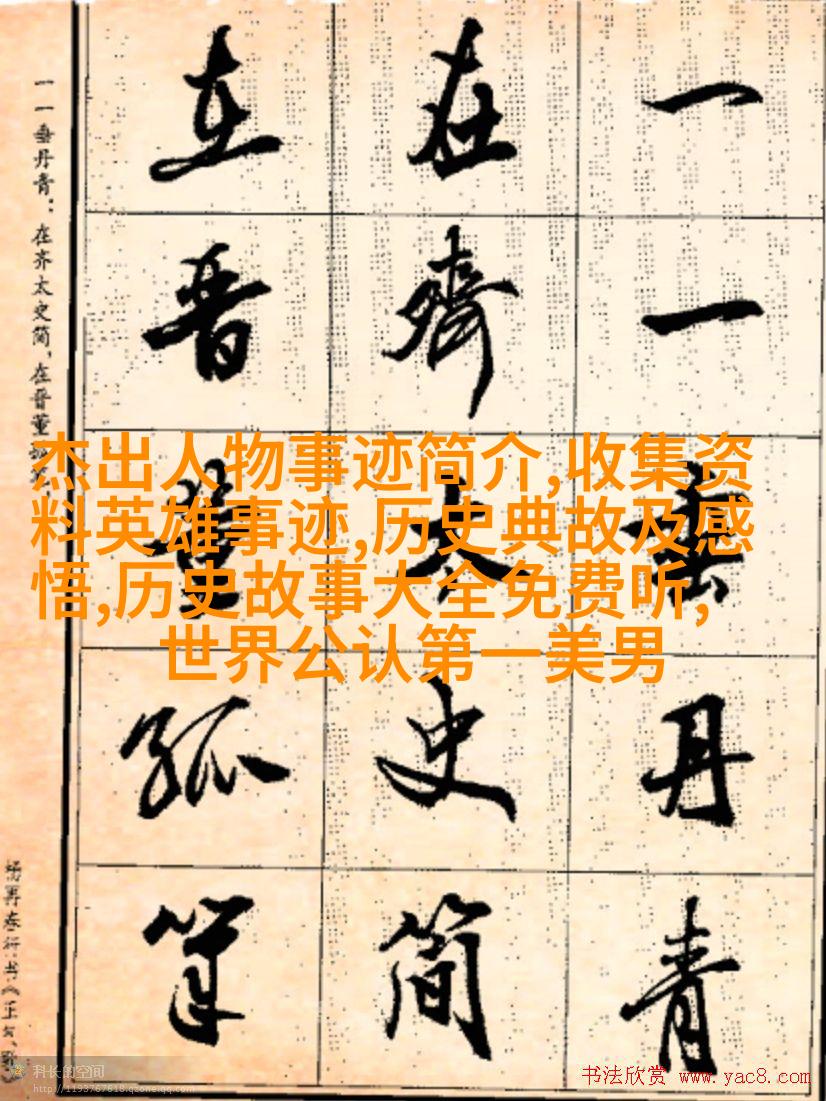 一一垂丹青
在齊太史简
在晋董孤筆
一一垂丹青：在齐太史简，在晋董
杰出人物事迹简介,收集资
料英雄事迹,历史典故及感
悟,历史故事大全免费听,
世界公认第一美男
杨再春行书《正气
科长的空间
http://1193767618.qzone.qq.com
书法欣赏 www.yac8.com